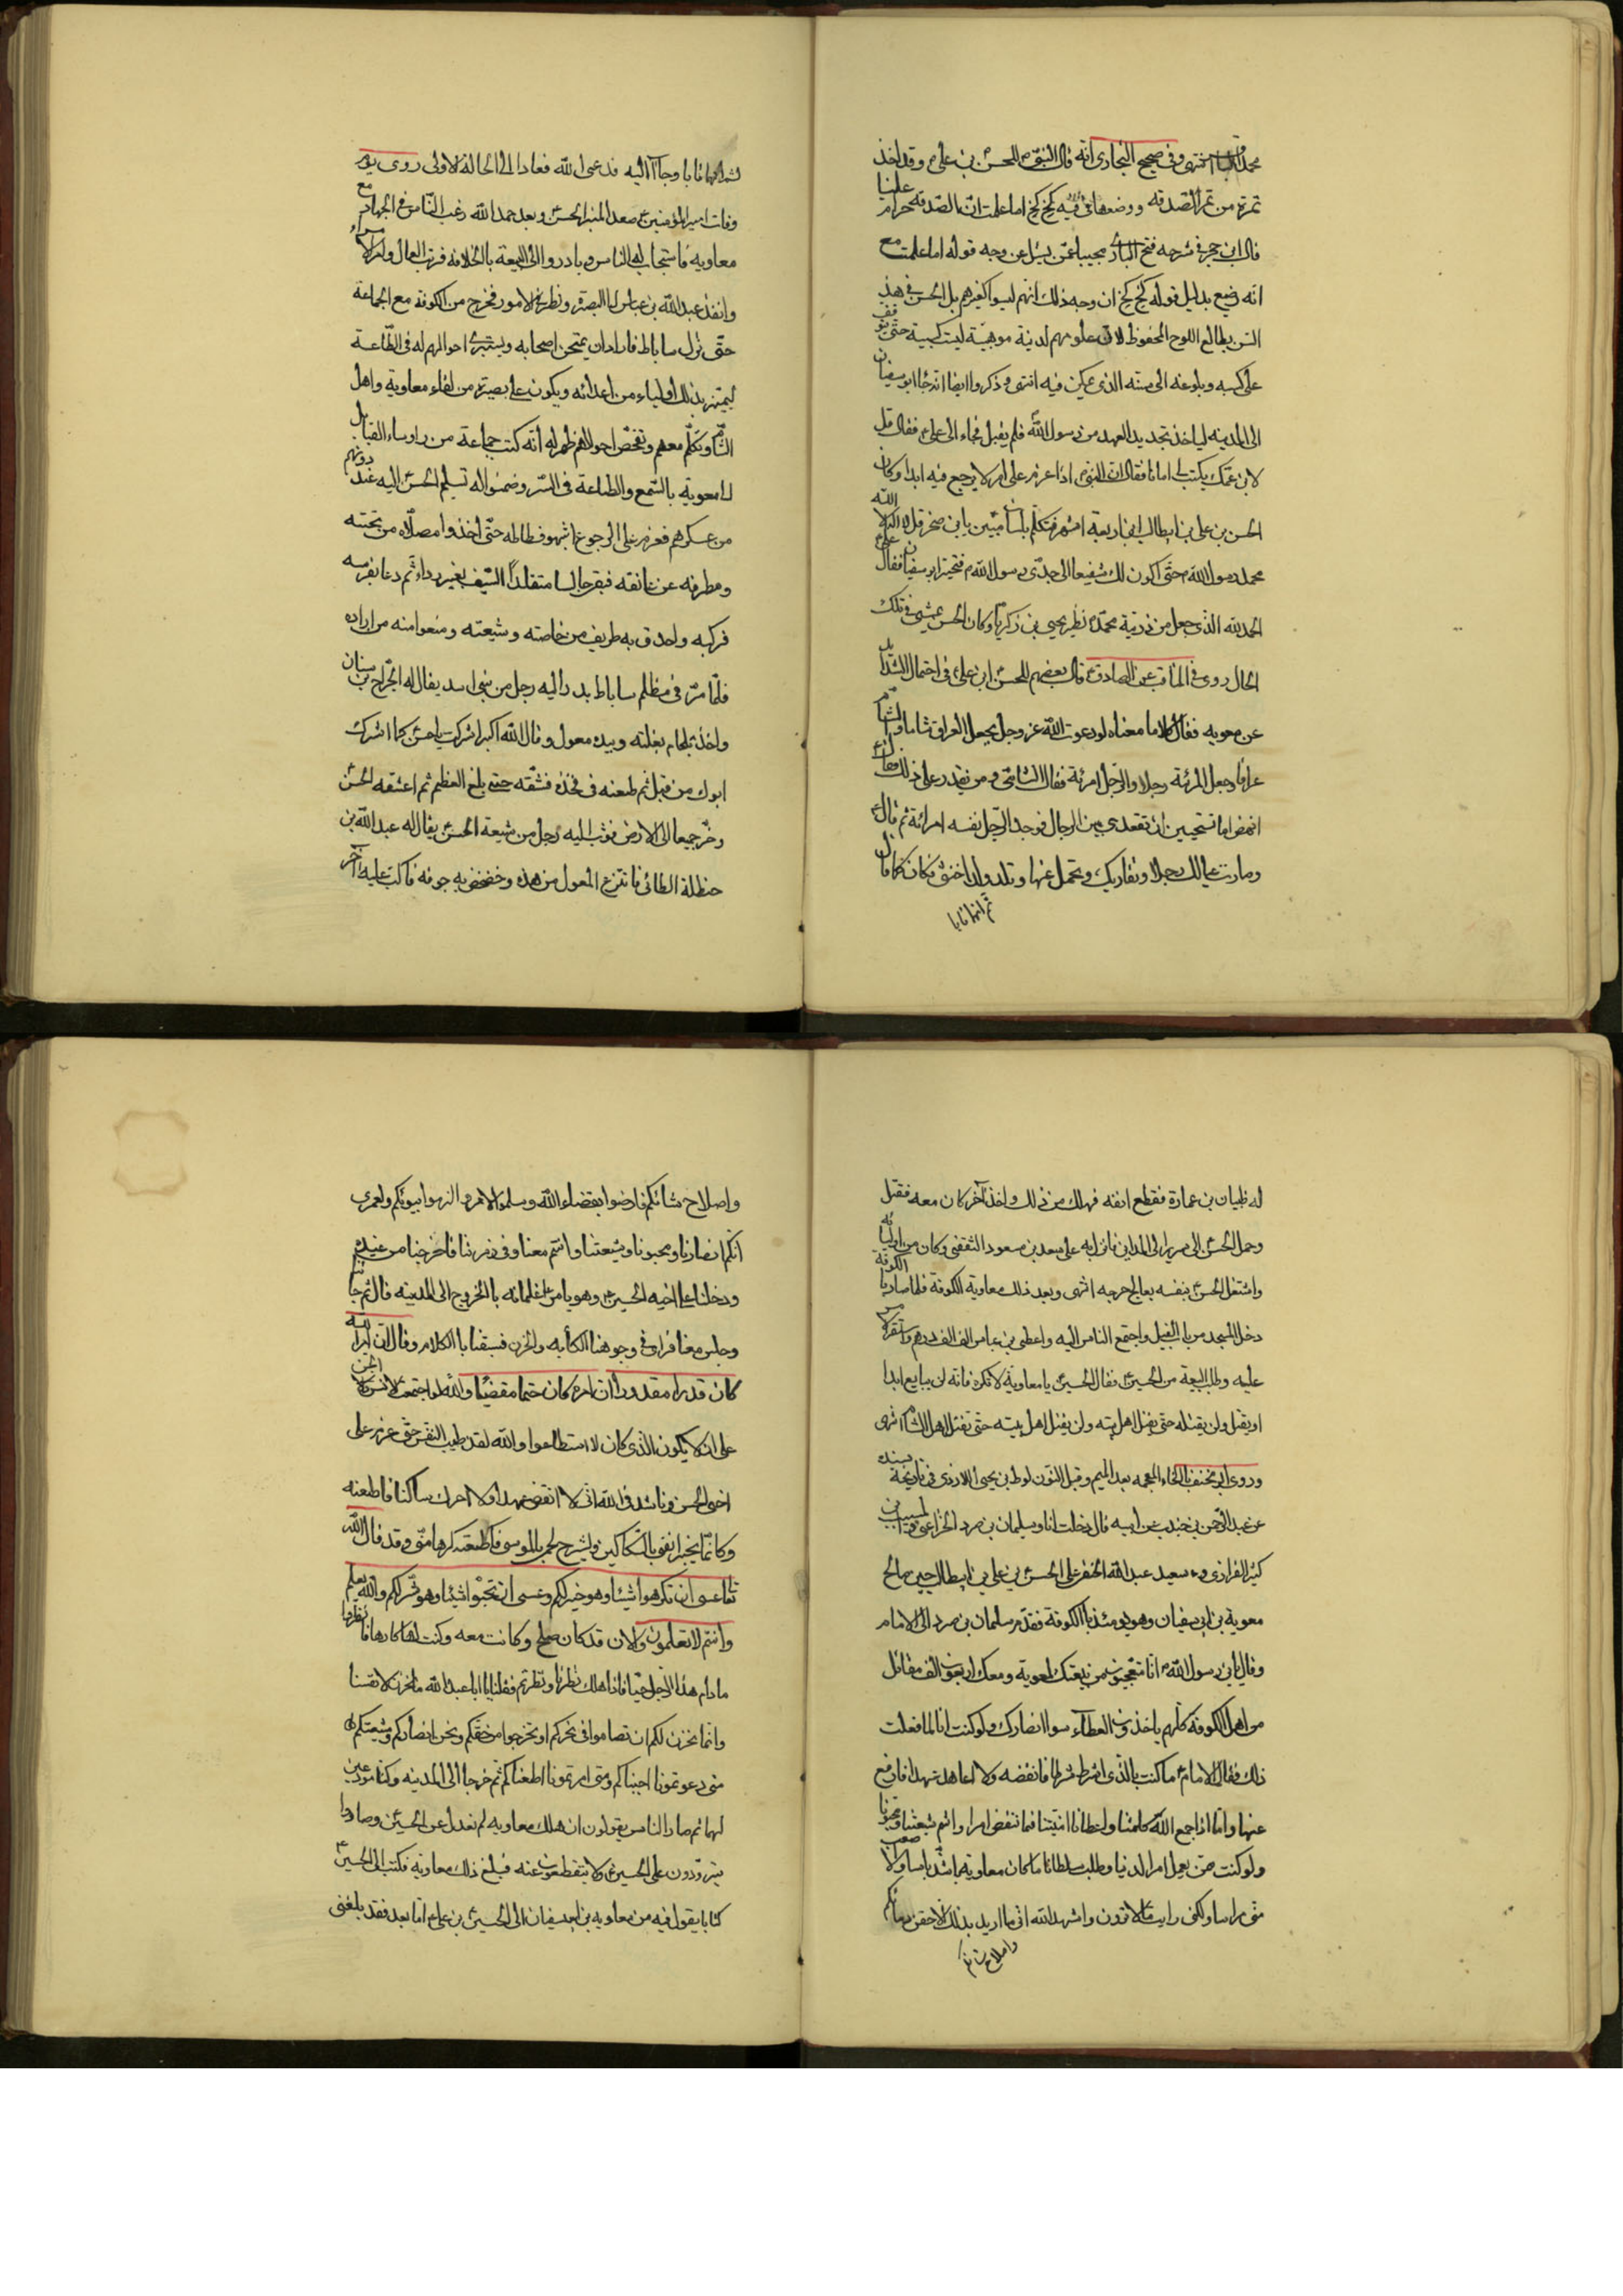 محمد الباقر انتهى وفى صحيح البخارى انه قال النبى للحسن بن على وقد اخذ
تمرة من تمر الصدقه ووضعها فى فيه كخ كخ اما علمت ان الصدقه حرام علينا
قال ابن حجر فى شرحه فتح البارى مجيبا عمن يسئل عن وجه قوله اما علمت مع
انه رضيع بدليل قوله كخ كخ ان وجه ذلك انهم ليسوا كغيرهم بل الحسن فى هذ
السن يطالع اللوح المحفوظ لان علومهم لدنية موهبية ليست كسبية حتى يتوقف
على كسبه وبلوغه الى سنه الذى يمكن فيه انتهى وذكروا ايضا انه جاء ابو سفيان
الى المدينه لياخذ تجديد العهد من رسول الله فلم يقبل فجاء الى على فقال قل
لابن عمك يكتب لى امانا فقال ان النبى اذا عزم على امر لا يرجع فيه ابدا وكان
الحسن بن على بن ابيطالب ابن اربعة اشهر فتكلم بلسان مبين يابن صخر قل لا اله الا الله
محمد رسول الله حتى اكون لك شفيعا الى جدى رسول الله فتحير ابو سفيان فقال على
الحمد لله الذى جعل من ذرية محمد نظير يحيى بن زكريا وكان الحسن يمشى فى تلك
الحال روى فى المناقب عن الصادق قال بعضهم للحسن ابن على فى احتمال الشدائد
عن معويه فقال كلاما معناه لو دعوت الله عز وجل يجعل العراق شاما والشام
عراقا وجعل المرئة رجلا والرجل امرئة فقال الشامى ومن يقدر على ذلك فقال
انهض اما تستحيين ان تقعدى بين الرجال فوجد الرجل نفسه امرائة ثم قال
وصارت عيالك رجلا وتقاربك وتحمل عنها وتلد ولدا خنثى فكان كما قال
ثم انهما تابا
ثم انهما تابا وجاآ اليه فدعى الله فعادا الى الحالة الاولى روى
وفات امير المؤمنين صعد المنبر الحسن وبعد حمد الله رغب الناس فى الجهاد مع
معاويه فاستجاب له الناس وبادروا الى البيعة بالخلافه فرتب العمال وامر الامراء
وانفذ عبدالله بن عباس الى البصرة ونظر فى الامور فخرج من الكوفة مع الجماعة
حتى نزل ساباط فاراد ان يمتحن اصحابه ويستبرئ احوالهم له فى الطاعة
ليميز بذلك اولياءه من اعدائه ويكون على بصيرة من لقاء معاوية واهل
الشام وتكلم معهم وتفحص احوالهم فظهر له أنه كتب جماعة من رؤساء القبايل
الى معوية بالسمع والطاعة فى السر وضمنوا له تسليم الحسن اليه عند دونهم
من عسكرهم فعزم على الرجوع حتى اخذوا مصلاه من تحته
ومطرفه عن عاتقه فبقى جالسا متقلداً السيف بغير رداء ثم دعا بفرسه
فركبه واحدق به طريف من خاصته وشيعته ومنعوا منه من اراده
فلما مر فى مظلم ساباط بدر اليه رجل من بنى اسد يقال له الجراح بن سنان
واخذ بلجام بغلته وبيده معول وقال الله اكبر اشركت يا حسن كما اشرك
ابوك من قبل ثم طعنه فى فخذه فشقه حتى بلغ العظم ثم اعتنقه الحسن
وخر جميعا الى الارض فوثب اليه رجل من شيعة الحسن يقال له عبدالله بن
حنظلة الطائى فانتزع المعول من يده وخضخض به جوفه فاكب عليه آخر
له ظبيان بن عمارة فقطع انفه فهلك من ذلك واخذ آخر كان معه فقتل
وحمل الحسن الى سرير الى المداين فانزل به على سعد بن مسعود الثقفى وكان من اوليائه
واشتغل الحسن بنفسه يعالج جرحه انتهى وبعد ذلك معاوية الكوفة فلما صار بالكوفة
دخل المسجد من باب الفيل واجتمع الناس اليه واعطى بن عباس الف الف درهم واستقر الامر
عليه وطلب البيعة من الحسين فقال الحسن يا معاوية لا تكره فانه لن يبايع ابدا
او يقتل ولن يقتله حتى يقتل اهل بيته ولن يقتل اهل بيته حتى تقتل اهل الشام انتهى
وروى ابو مخنف بالخاء المعجمه بعد الميم وقبل النون لوط بن يحيى الازدى فى تاريخه بسنده
عن عبد الرحمن بن جندب عن ابيه قال دخلت انا وسليمان بن صرد الخزاعى والمسيب بن
الفزارى وسعيد عبدالله الحنفى على الحسن بن على بن ابيطالب حين صالح
معوية بن ابى سفيان وهو يومئذ بالكوفة فتقدم سليمان بن صرد الى الامام
وقال يابن رسول الله انا متعجبون من بيعتك لمعوية ومعك اربعون الف مقاتل
من اهل الكوفه كلهم ياخذون العطآء سوا انصارك ولو كنت انا لما فعلت
ذلك فقال الامام ما كنت بالذى اشرط شرطا فانقضه ولا اعاهد عهدا فارجع
عنها واما اذا جمع الله كلمتنا واعطانا فما تنقض امرا وانتم شيعتنا ومحبونا
ولو كنت ممن يعمل امر الدنيا وطلب سلطانا ما كان معاوية باشد باسا ولا اصعب
منى مراسا ولكنى رايت ما لا ترون واشهد الله انى ما اريد بذلك الا حقن دمائكم
واصلاح شانكم
واصلاح شانكم فارضوا بقضاء الله وسلموا الامر والزموا بيوتكم ولعمرى
انكم انصارنا ومحبونا وشيعتنا وانتم معنا وفى زمرتنا فاخرجنا من عنده
ودخلنا على اخيه الحسين وهو يامر غلمانه بالخروج الى المدينه قال ثم جاء
وجلس معنا فراى فى وجوهنا الكأبه والحزن فسبقنا بالكلام وقال ان امر الله
كان قدرا مقدورا ان امره كان حتما مقضيا والله لو اجتمعت الانس والجن
على ان لا يكون الذى كان لا استطاعوا والله لقد طيب النفس حتى عزم على
اخى الحسن وناشدنى الله انى لا انقض عهدا ولا احرك ساكنا فاطعته
وكانما يخبر انفى بالسكاكين ويشرح لحمى بالموسى فاطعته كرها منى وقد قال الله
تعا عسى ان تكرهوا شيئا وهو خير لكم وعسى ان تحبوا شيئا وهو شر لكم والله يعلم
وانتم لا تعلمون والان قد كان صلح وكانت معه وكنت لها كارها فانظروا
مادام هذا الرجل حيا فاذا هلك نظرنا ونظرتم فقلنا يا ابا عبدالله ما نحزن لانفسنا
وانما نحزن لكم ان تضاموا فى نحركم او تخرجوا من حقكم ونحن انصاركم وشيعتكم
متى دعوتمونا اجبناكم ومتى امرتمونا اطعناكم ثم خرجا الى المدينه وكنا مودعين
لهما ثم صار الناس يقولون ان هلك معاويه لم نعدل عن الحسين وصاروا
يترددون على الحسين ولا ينقطعون عنه فبلغ ذلك معاويه فكتب الى الحسين
كتابا يقول فيه من معاويه بن ابى سفيان الى الحسين بن على اما بعد فقد بلغنى